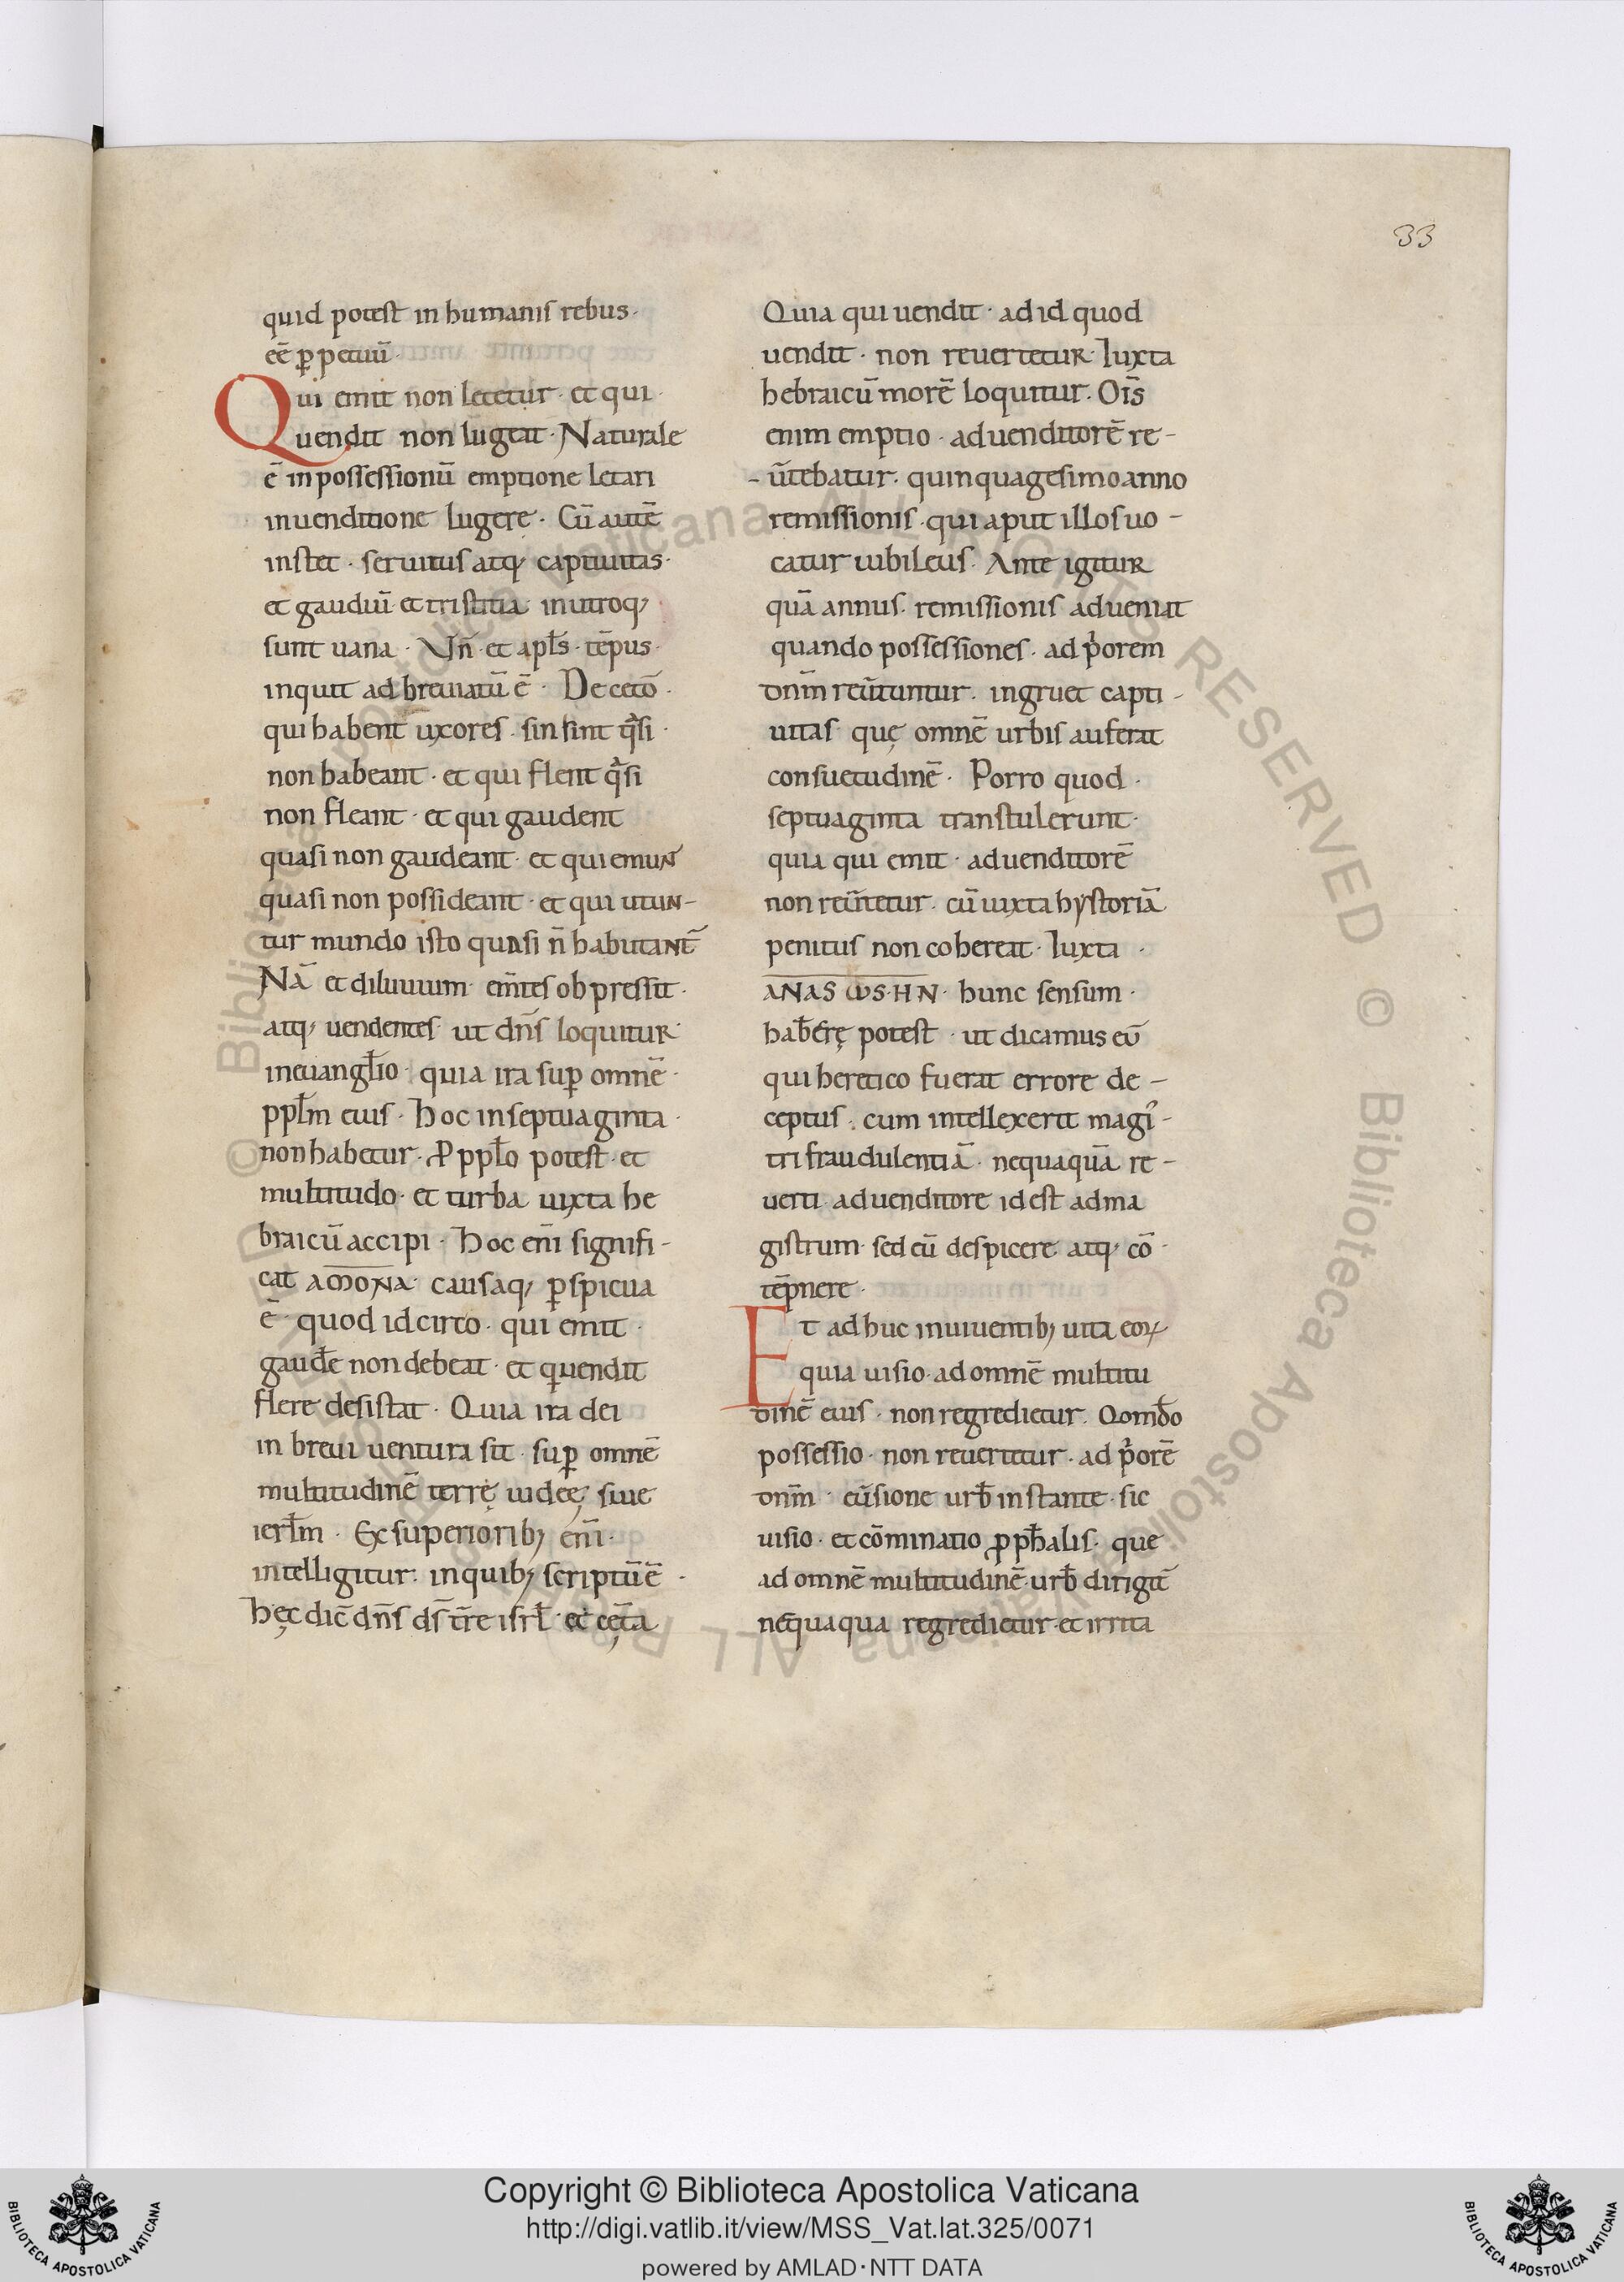 33
quid potest in humanis rebus·
eē ꝑpetuū·
Qui emit non letetur· et qui·
uendit non lugeat· Naturale
ē in possessionū emptione letari
in uenditione lugere· Cū autē
instet· seruitus atq; captiuitas·
et gaudiū et tristitia in utroq;
sunt uana· Vn̄ et apl̄s· tēpus·
inquit ad breuiatū ē· De cetō·
qui habent uxores· sin sint qͣsi·
non habeant· et qui flent qͣsi
non fleant· et qui gaudent
quasi non gaudeant· et qui emun̄
quasi non possideant· et qui utun-
tur mundo isto quasi n̄ habutant̄
Nā et diluuium em̄tes obpressit·
atq; uendentes· ut dn̄s loquitur·
in euangl̄io· quia ira suꝑ omnē·
ppl̄m eius· Hoc in septuaginta·
non habetur· Ꝓ ppl̄o potest· et
multitudo· et turba iuxta he
braicū accipi· Hoc eni̅ signifi-
cat AMONA· causaq; ꝑspicua
ē· quod idcirco· qui emit·
gaud̄e non debeat· et q̇ uendit
flere desistat· Quia ira dei
in breui uentura sit· suꝑ omnē
multitudinē terrę iudeę, siue
ierl̄m· Ex superiorib; eni̅·
intelligitur: in quib; scriptū ē·
hęc dic̄ dn̄s ds̄ tr̄e isrl̄· et cęt̄a
Quia qui uendit· ad id quod
uendit· non reuertetur· Iuxta
hebraicū morē loquitur· Oīs
enim emptio· ad uenditorē re-
-ūtebatur· quinquagesimo anno
remissionis· qui aput illos uo-
catur iubileus· Ante igitur
quā annus· remissionis adueniat
quando possessiones· ad p̍orem
dnm̄ reūtuntur· ingruet capti-
uitas quę omnē urbis auferat
consuetudinē· Porro quod·
septuaginta transtulerunt·
quia qui emit· ad uenditorē
non reūtetur· cū iuxta hystoriā
penitus non cohereat· Iuxta·
ANAS ωS·HN· hunc sensum·
hab̄erę potest· ut dicamus eū
qui heretico fuerat errore de-
ceptus· cum intellexerit magi̓-
tri fraudulentiā· nequaquā re-
uerti ad uenditore id est ad ma
gistrum· sed eū despicere atq; cō·
tēpnere·
Et ad huc in uiuentib; uita eoꝝ
quia uisio· ad omnē multitu
dinē eius· non regredietur· Qomd̄o
possessio· non reuertetur· ad p̍orē
dnm̄· eūsione urb̄ instante· sic
uisio· et cōminatio ꝓph̄alis· que
ad omnē multitudinē· urb̄ dirigit̄
nequaqua regredietur· et irrita
© Biblioteca Apostolica Vaticana ALL RIGHTS RESERVED © Biblioteca Apostolica Vaticana ALL RIGHTS RESERVED
Copyright © Biblioteca Apostolica Vaticana
http://digi.vatlib.it/view/MSS_Vat.lat.325/0071
powered by AMLAD·NTT DATA
BIBLIOTECA APOSTOLICA VATICANA
BIBLIOTECA APOSTOLICA VATICANA